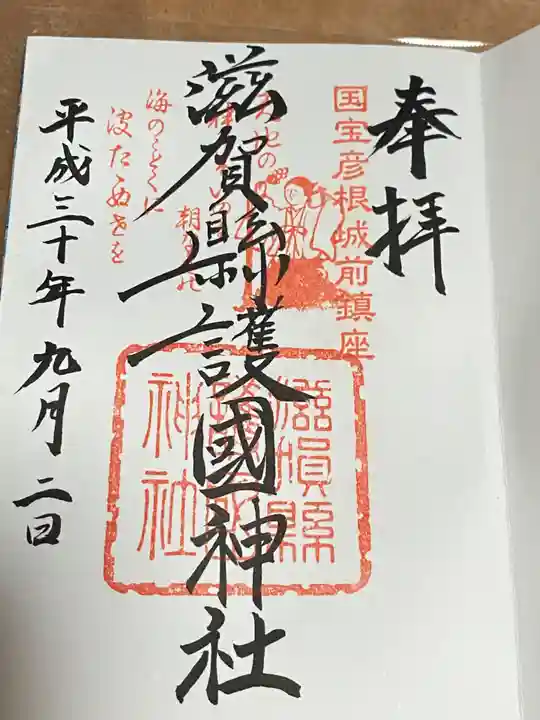 奉拝
国宝彦根城前鎮座
滋賀縣護國神社
滋賀縣
護國
神社
海のことくに
波たゝぬ世を
平成三十年九月二日